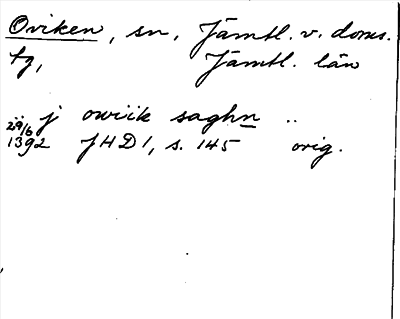 Oviken, sn, Jämtl. v. doms.
tg, Jämtl. län
j owiik saghn ..
29/6 1392 JHD 1, s. 145 orig.